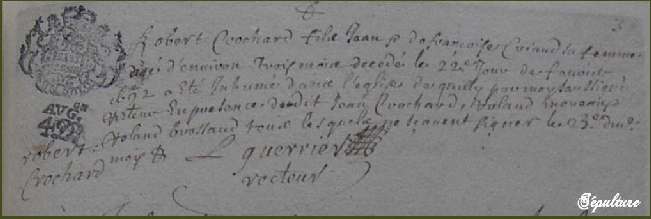 Robert Crochard fils Jean & de françoise Criaud sa femme
âgé d'environ trois mois decedé le 22e Jour de
1692 a Eté Inhumé dans l'eglise par moy soussigné
recteur En presence dudit Jean Crochard, Roland
Roland brossaud tous lesquels ne sçavent signer le 23e dud.
mois &
robert
Crochard
L guerrier
recteur
AVG.
3
Sépulture